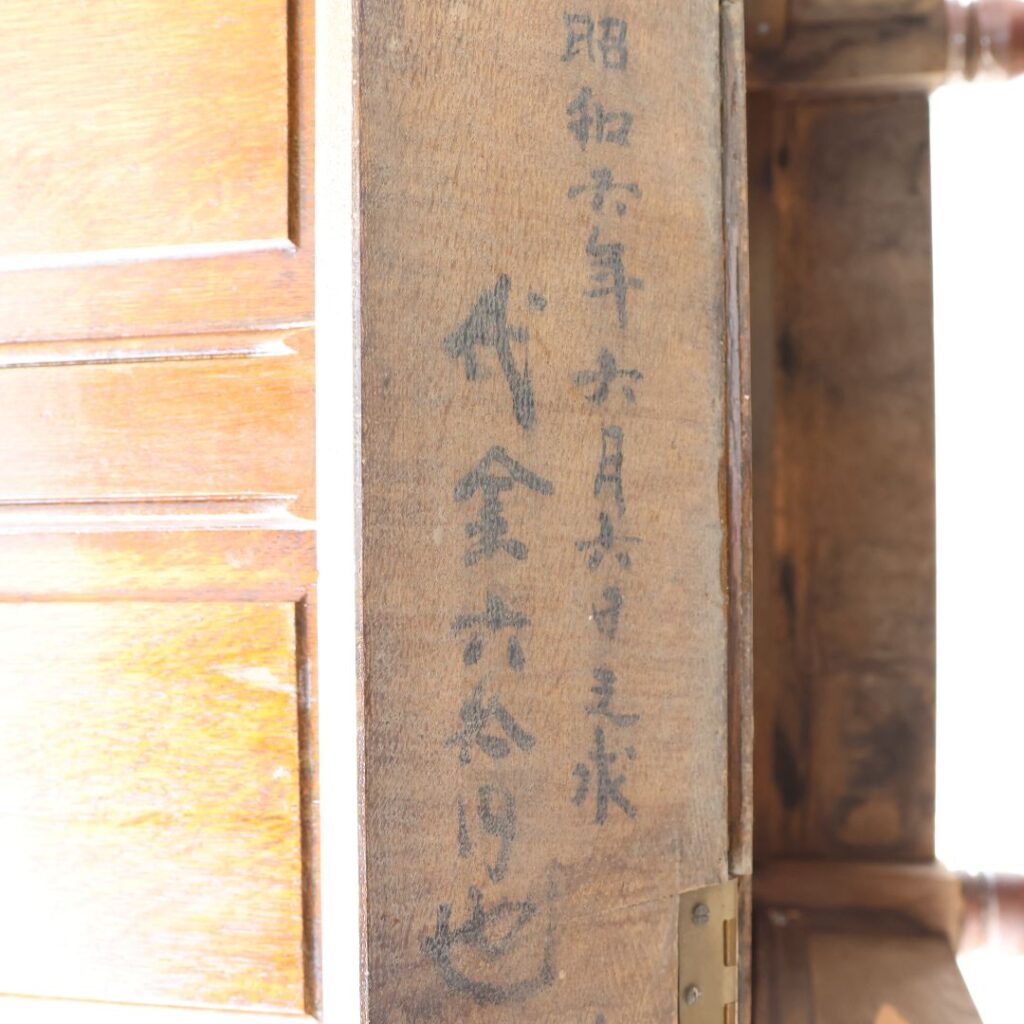 昭和六年六月六日主求
代金六拾円也